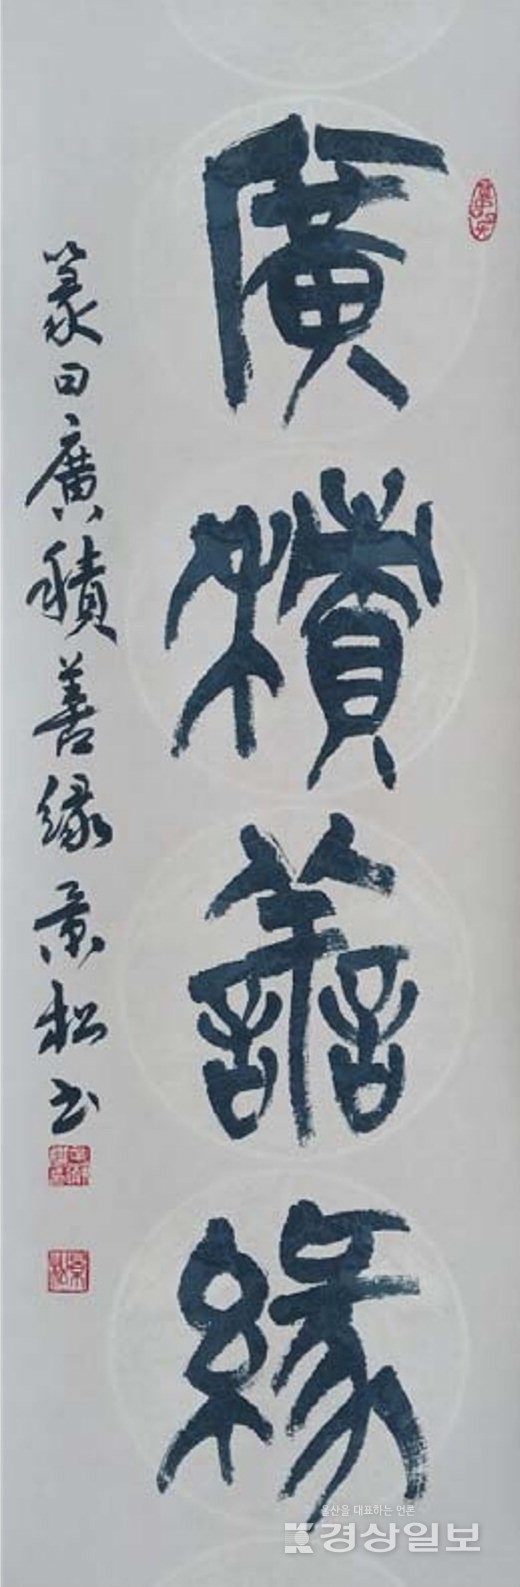 廣積善緣
篆曰廣積善緣景松书
울산을 대표하는 언론
경상일보